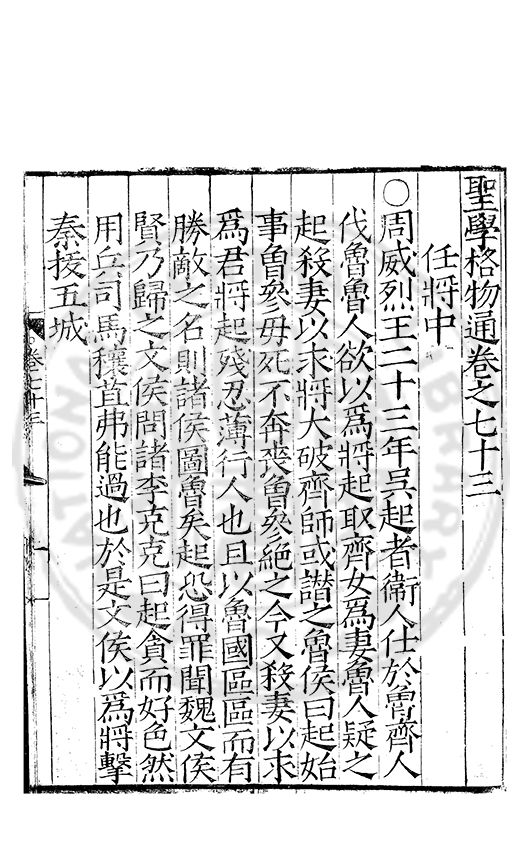 聖學格物通卷之七十三
任將中
○周威烈王二十三年吳起者衞人仕於魯齊人
伐魯魯人欲以爲將起取齊女爲妻魯人疑之
起殺妻以求將大破齊師或譖之魯侯曰起始
事魯參母死不奔喪魯參絶之今又殺妻以求
爲君將起殘忍薄行人也且以魯國區區而有
勝敵之名則諸侯圖魯矣起恐得罪聞魏文侯
賢乃歸之文侯問諸李克克曰起貪而好色然
用兵司馬穰苴弗能過也於是文侯以爲將擊
秦授五城
卷七十三
一